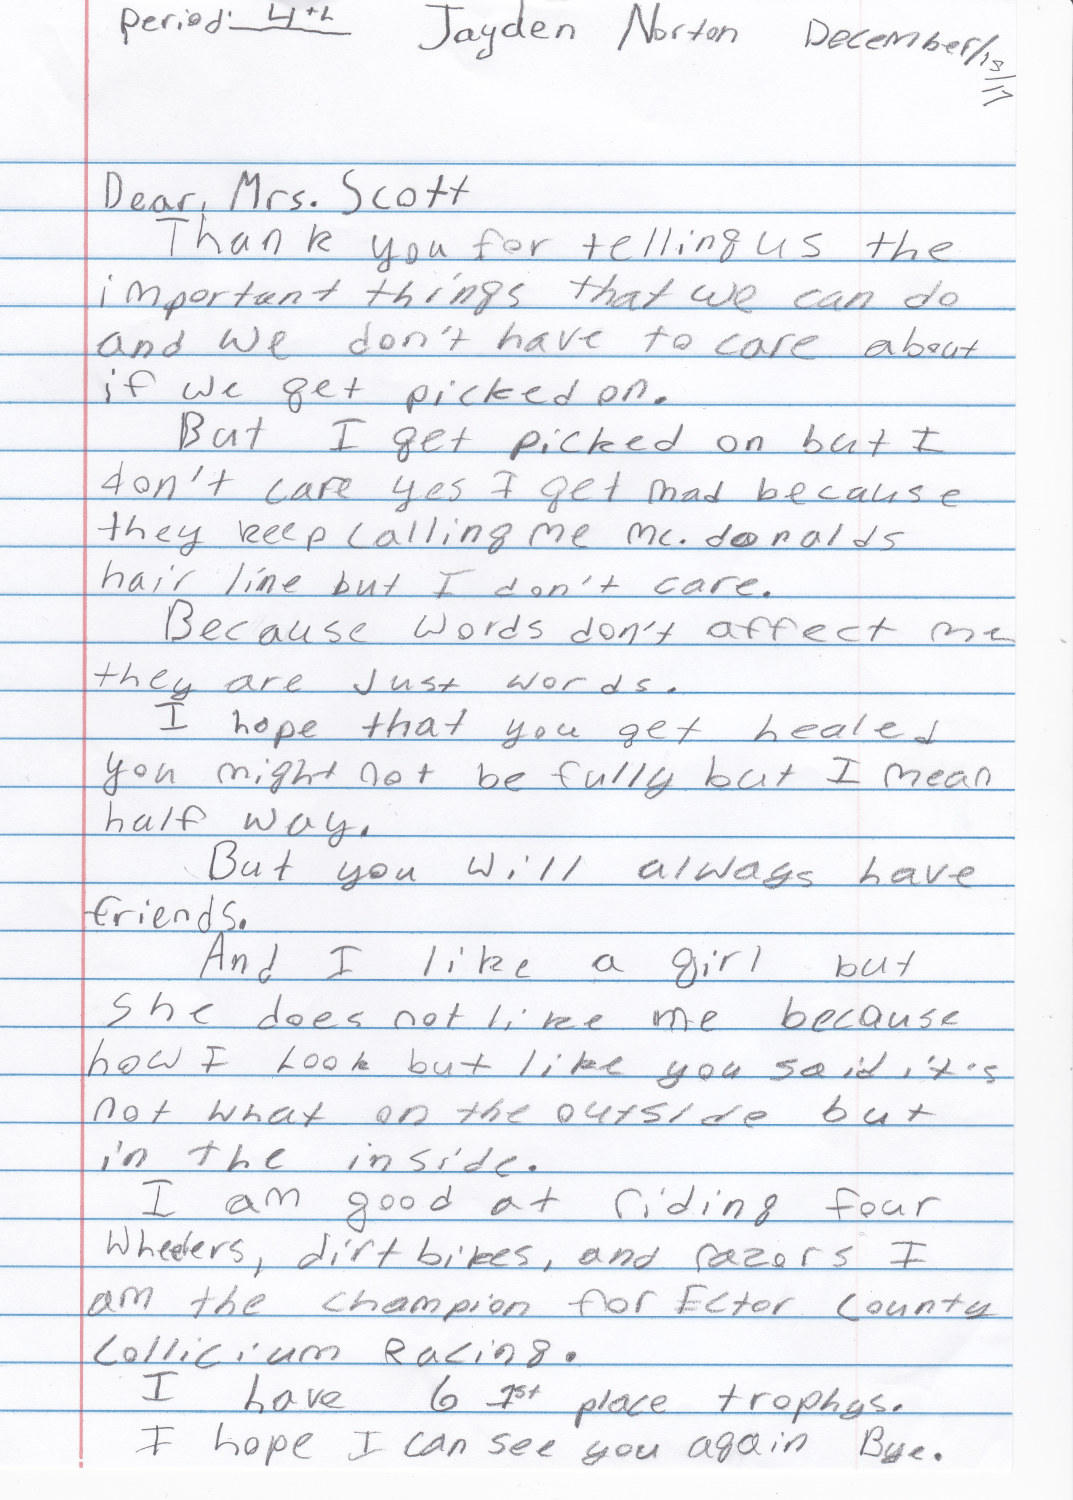 Period: 4th Jayden Norton December/13/17
Dear, Mrs. Scott
Thank you for telling us the
important things that we can do
and we don't have to care about
if we get picked on.
But I get picked on but I
don't care yes I get mad because
they keep calling me mc. donalds
hair line but I don't care.
Because words don't affect me
they are Just words.
I hope that you get healed
you might not be fully but I mean
half way.
But you will always have
friends.
And I like a girl but
she does not like me because
how I Look but like you said it's
not what on the outside but
in the inside.
I am good at riding four
wheelers, dirtbikes, and razors I
am the champion for Ector County
Collicium Racing.
I have 6 1st place trophys.
I hope I can see you again Bye.